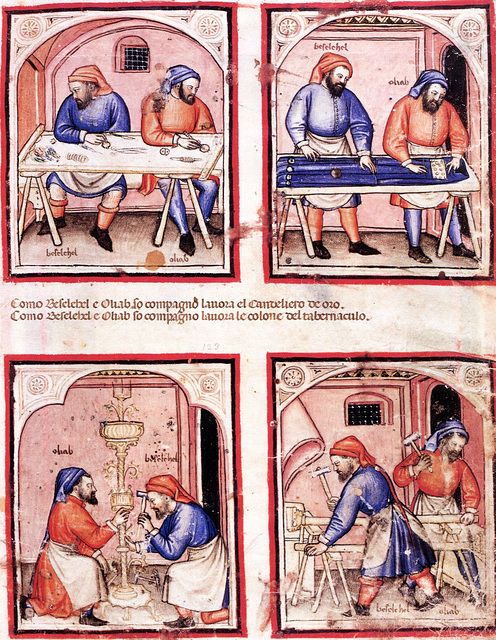 beselehel
oliab
beselehel
oliab
Como Beselehel e Oliab so compagno lauora el Candeliero de oro.
Como Beselehel e Oliab so compagno lauora le colone del tabernaculo.
oliab
beselehel
beselehel
oliab